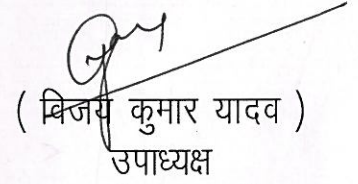 ( विजय कुमार यादव )
उपाध्यक्ष